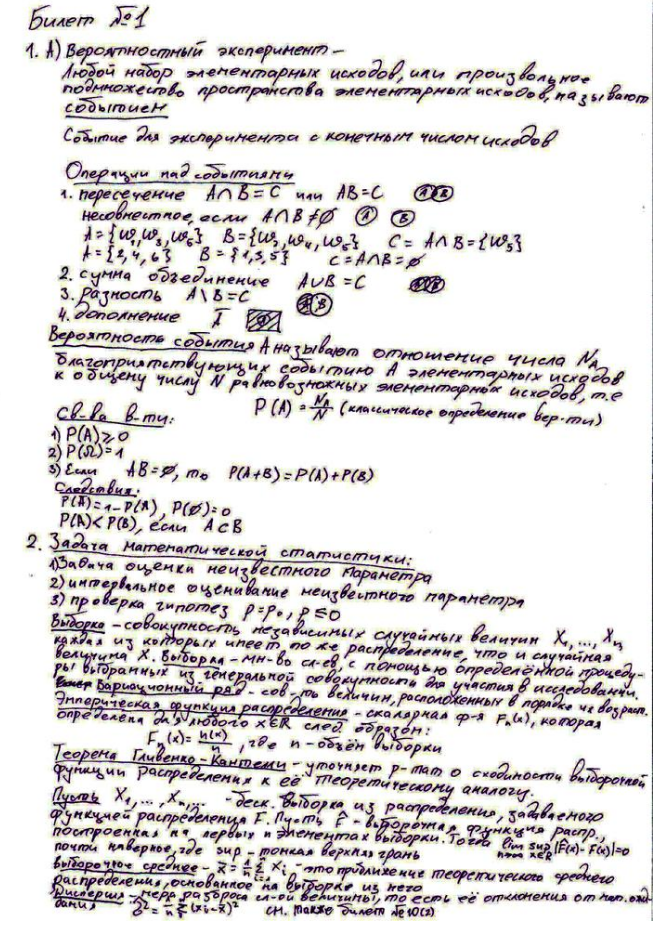 Билет №1
1. А) Вероятностный эксперимент –
Любой набор элементарных исходов, или произвольное
подмножество пространства элементарных исходов, называют
событием
Событие для эксперимента с конечным числом исходов
Операции над событиями
1. пересечение A∩B=C или AB=C (A B)
несовместное, если A∩B≠∅ (A) (B)
A={ω₁,ω₃,ω₅} B={ω₂,ω₄,ω₅} C=A∩B={ω₅}
A={2,4,6} B={1,3,5} C=A∩B=∅
2. сумма объединение A∪B=C
3. разность A\B=C (A B)
4. дополнение Ā
Вероятность события A называют отношение числа N_A
благоприятствующих событию A элементарных исходов
к общему числу N равновозможных элементарных исходов, т.е
P(A)=N_A/N (классическое определение вер-ти)
Св-ва в-ти:
1) P(A)≥0
2) P(Ω)=1
3) Если AB=∅, то P(A+B)=P(A)+P(B)
Следствия:
P(Ā)=1-P(A), P(∅)=0
P(A)<P(B), если A⊂B
2. Задача математической статистики:
1) Задача оценки неизвестного параметра
2) интервальное оценивание неизвестного параметра
3) проверка гипотез p=p₀, p≤0
Выборка – совокупность независимых случайных величин X₁,...,Xₙ,
каждая из которых имеет то же распределение, что и случайная
величина X. Выборка – мн-во сл-ев, с помощью определённой процеду-
ры выбранных из генеральной совокупности для участия в исследовании.
Вариационный ряд – сов-ть величин, расположенных в порядке их возраст.
Эмпирическая функция распределения – скалярная ф-я Fₙ(x), которая
определена для любого x∈R след. образом:
Fₙ(x)=n(x)/n, где n – объём выборки
Теорема Гливенко-Кантелли – уточняет р-тат о сходимости выборочной
функции распределения к её теоретическому аналогу.
Пусть X₁,...,Xₙ,... - беск. выборка из распределения, задаваемого
функцией распределения F. Пусть F̂ – выборочная функция распр.,
построенная на первых n элементах выборки. Тогда lim n→∞ sup x∈R |F̂(x)-F(x)|=0
почти наверное, где sup – точная верхняя грань
Выборочное среднее – x̄=1/n Σ Xᵢ - это приближение теоретического среднего
распределения, основанное на выборке из него
Дисперсия – мера разброса сл-ой величины, то есть её отклонения от мат. ожи-
дания σ̂²=1/n Σ(xᵢ-x̄)² см. также билет №10(2)